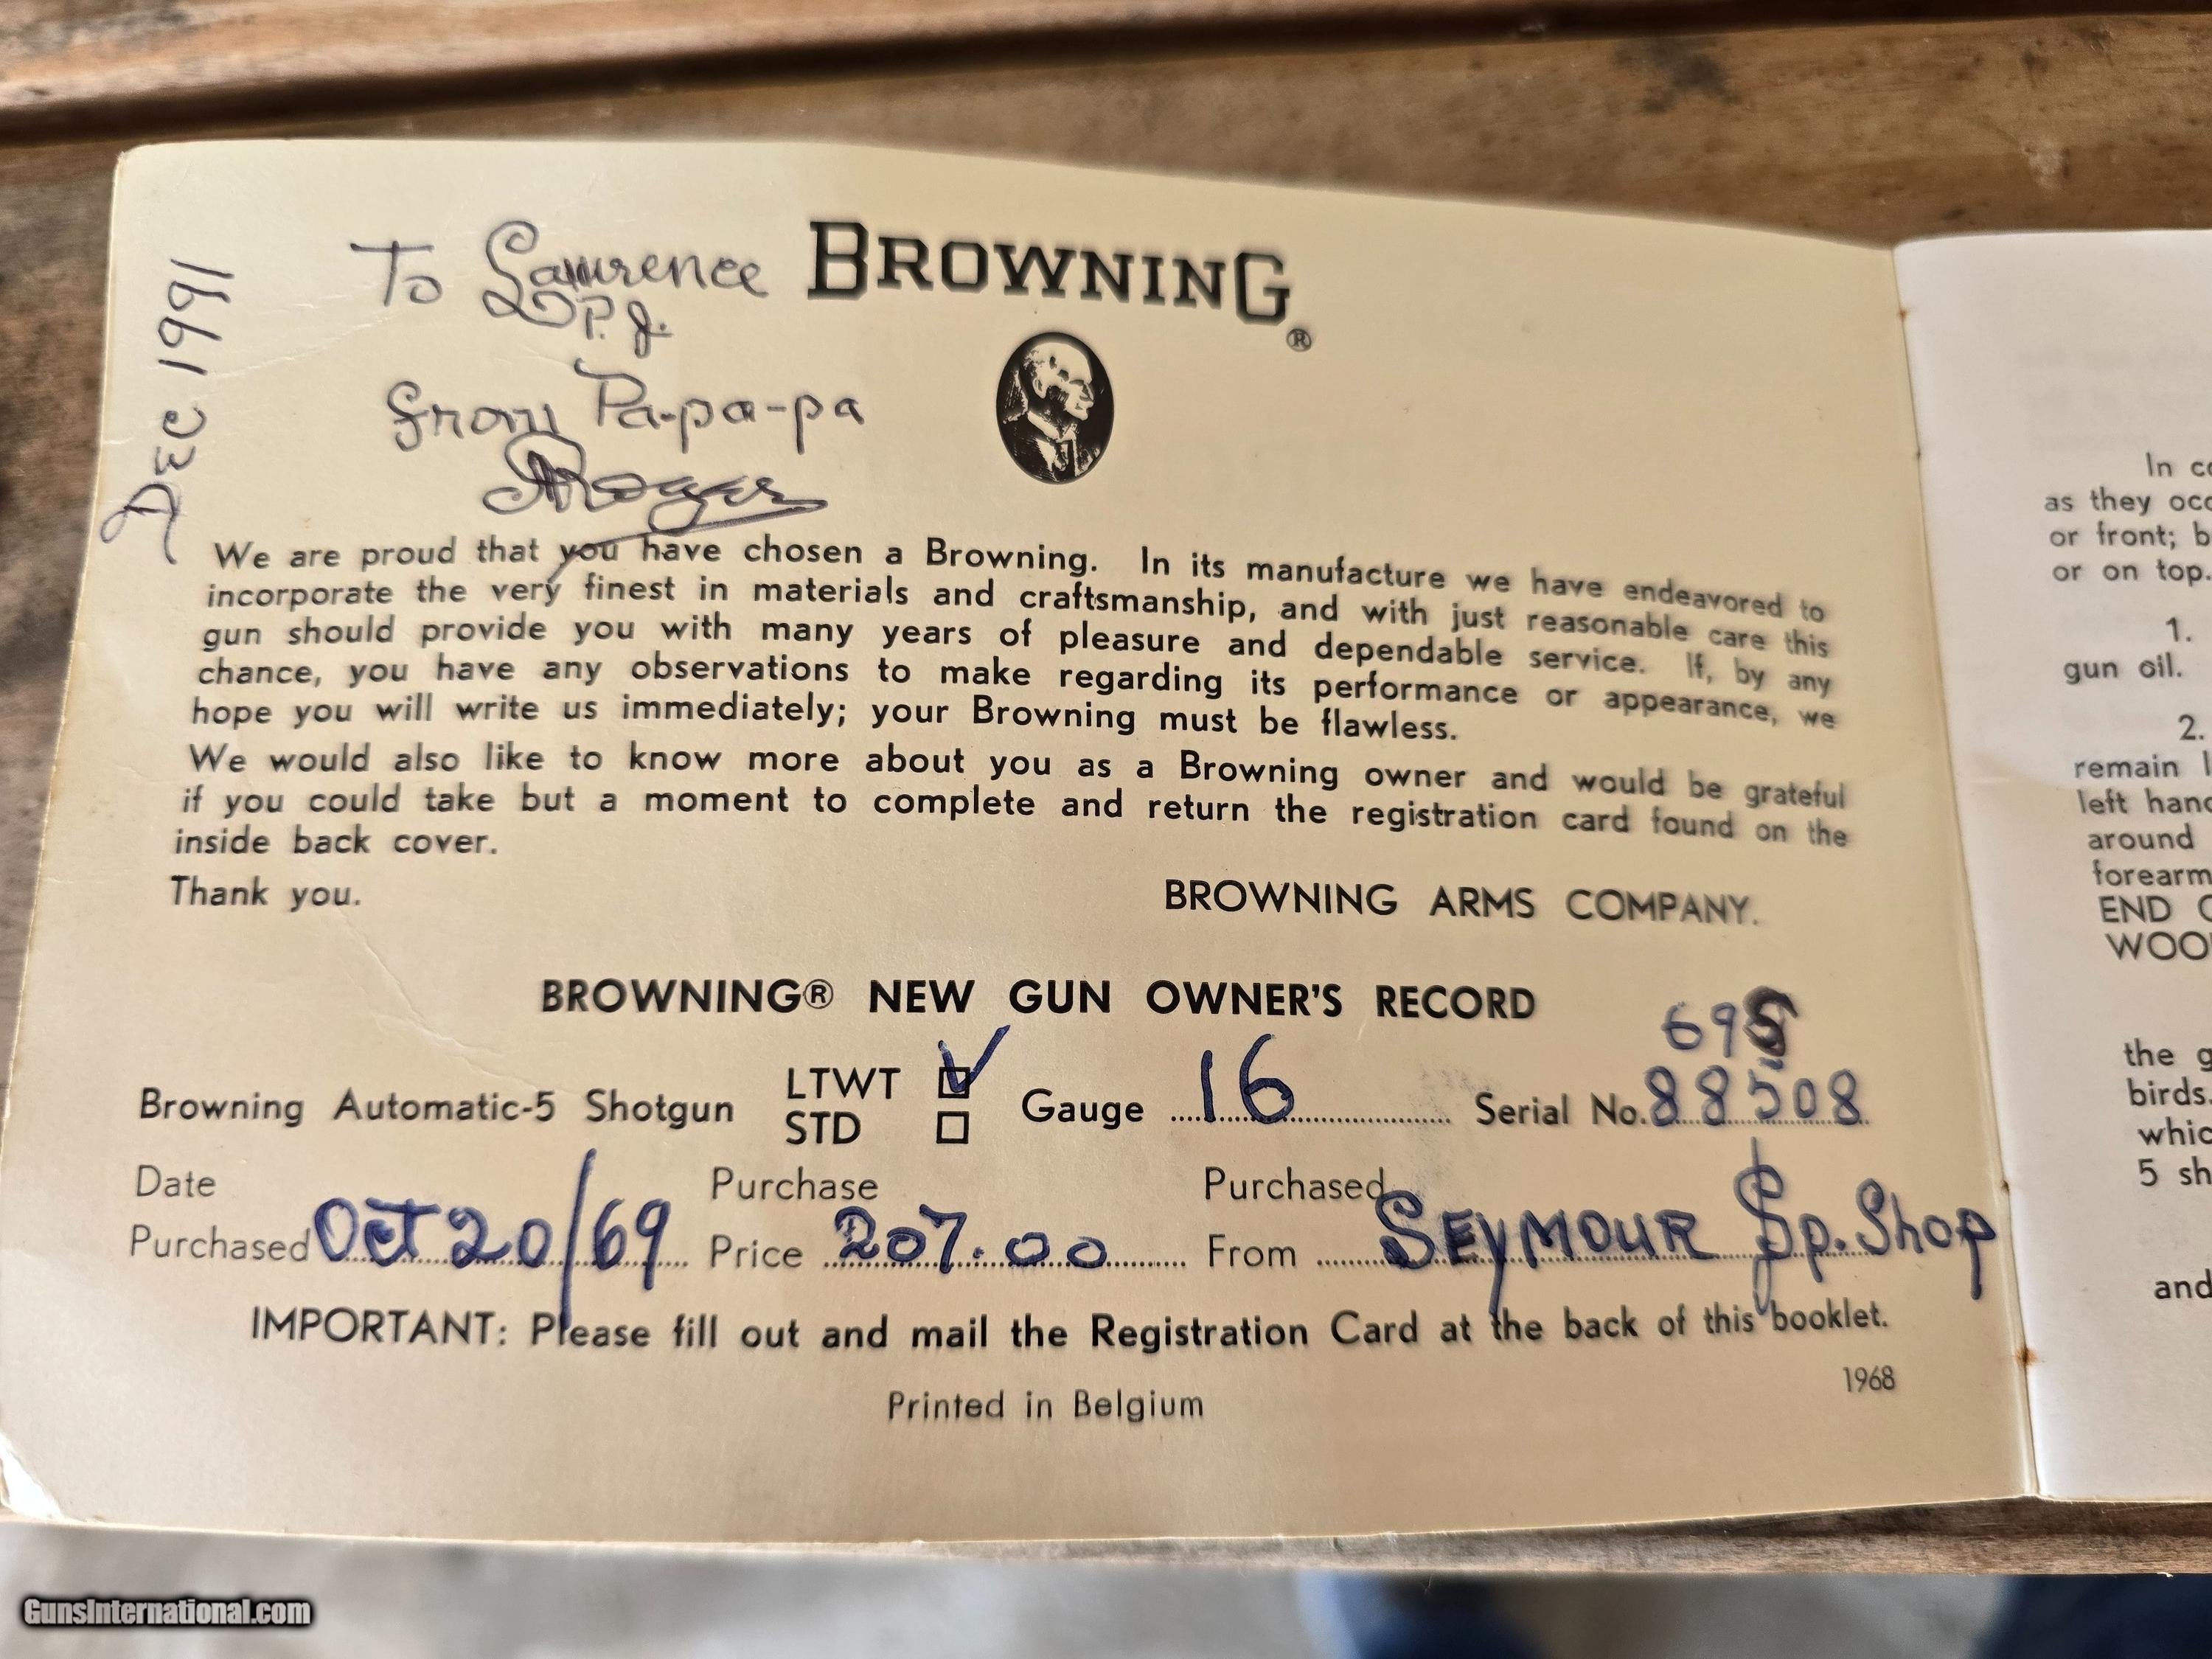 Dec 1991
To Lawrence
P.J.
from Pa-pa-pa
Roger
BROWNING®
We are proud that you have chosen a Browning. In its manufacture we have endeavored to
incorporate the very finest in materials and craftsmanship, and with just reasonable care this
gun should provide you with many years of pleasure and dependable service. If, by any
chance, you have any observations to make regarding its performance or appearance, we
hope you will write us immediately; your Browning must be flawless.
We would also like to know more about you as a Browning owner and would be grateful
if you could take but a moment to complete and return the registration card found on the
inside back cover.
Thank you.
BROWNING ARMS COMPANY.
BROWNING® NEW GUN OWNER'S RECORD
69S
Browning Automatic-5 Shotgun LTWT Gauge 16 Serial No. 88508
STD
Date Purchase Purchased
Purchased Oct 20/69 Price 207.00 From SEYMOUR Sp. Shop
IMPORTANT: Please fill out and mail the Registration Card at the back of this booklet.
1968
Printed in Belgium
as they
or front;
or on top.
1.
gun oil.
2.
remain
left
around
forearm
END
the
birds.
5
and
GunsInternational.com